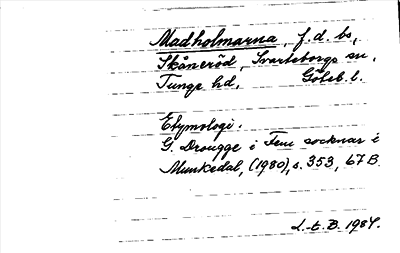 Madholmarna, f.d. bs,
Skåneröd, Svarteborgs sn,
Tunge hd, Göteb. l.
Etymologi.
G. Drougge i Fem socknar i
Munkedal, (1980), s. 353, 67B
L-t. B. 1984.